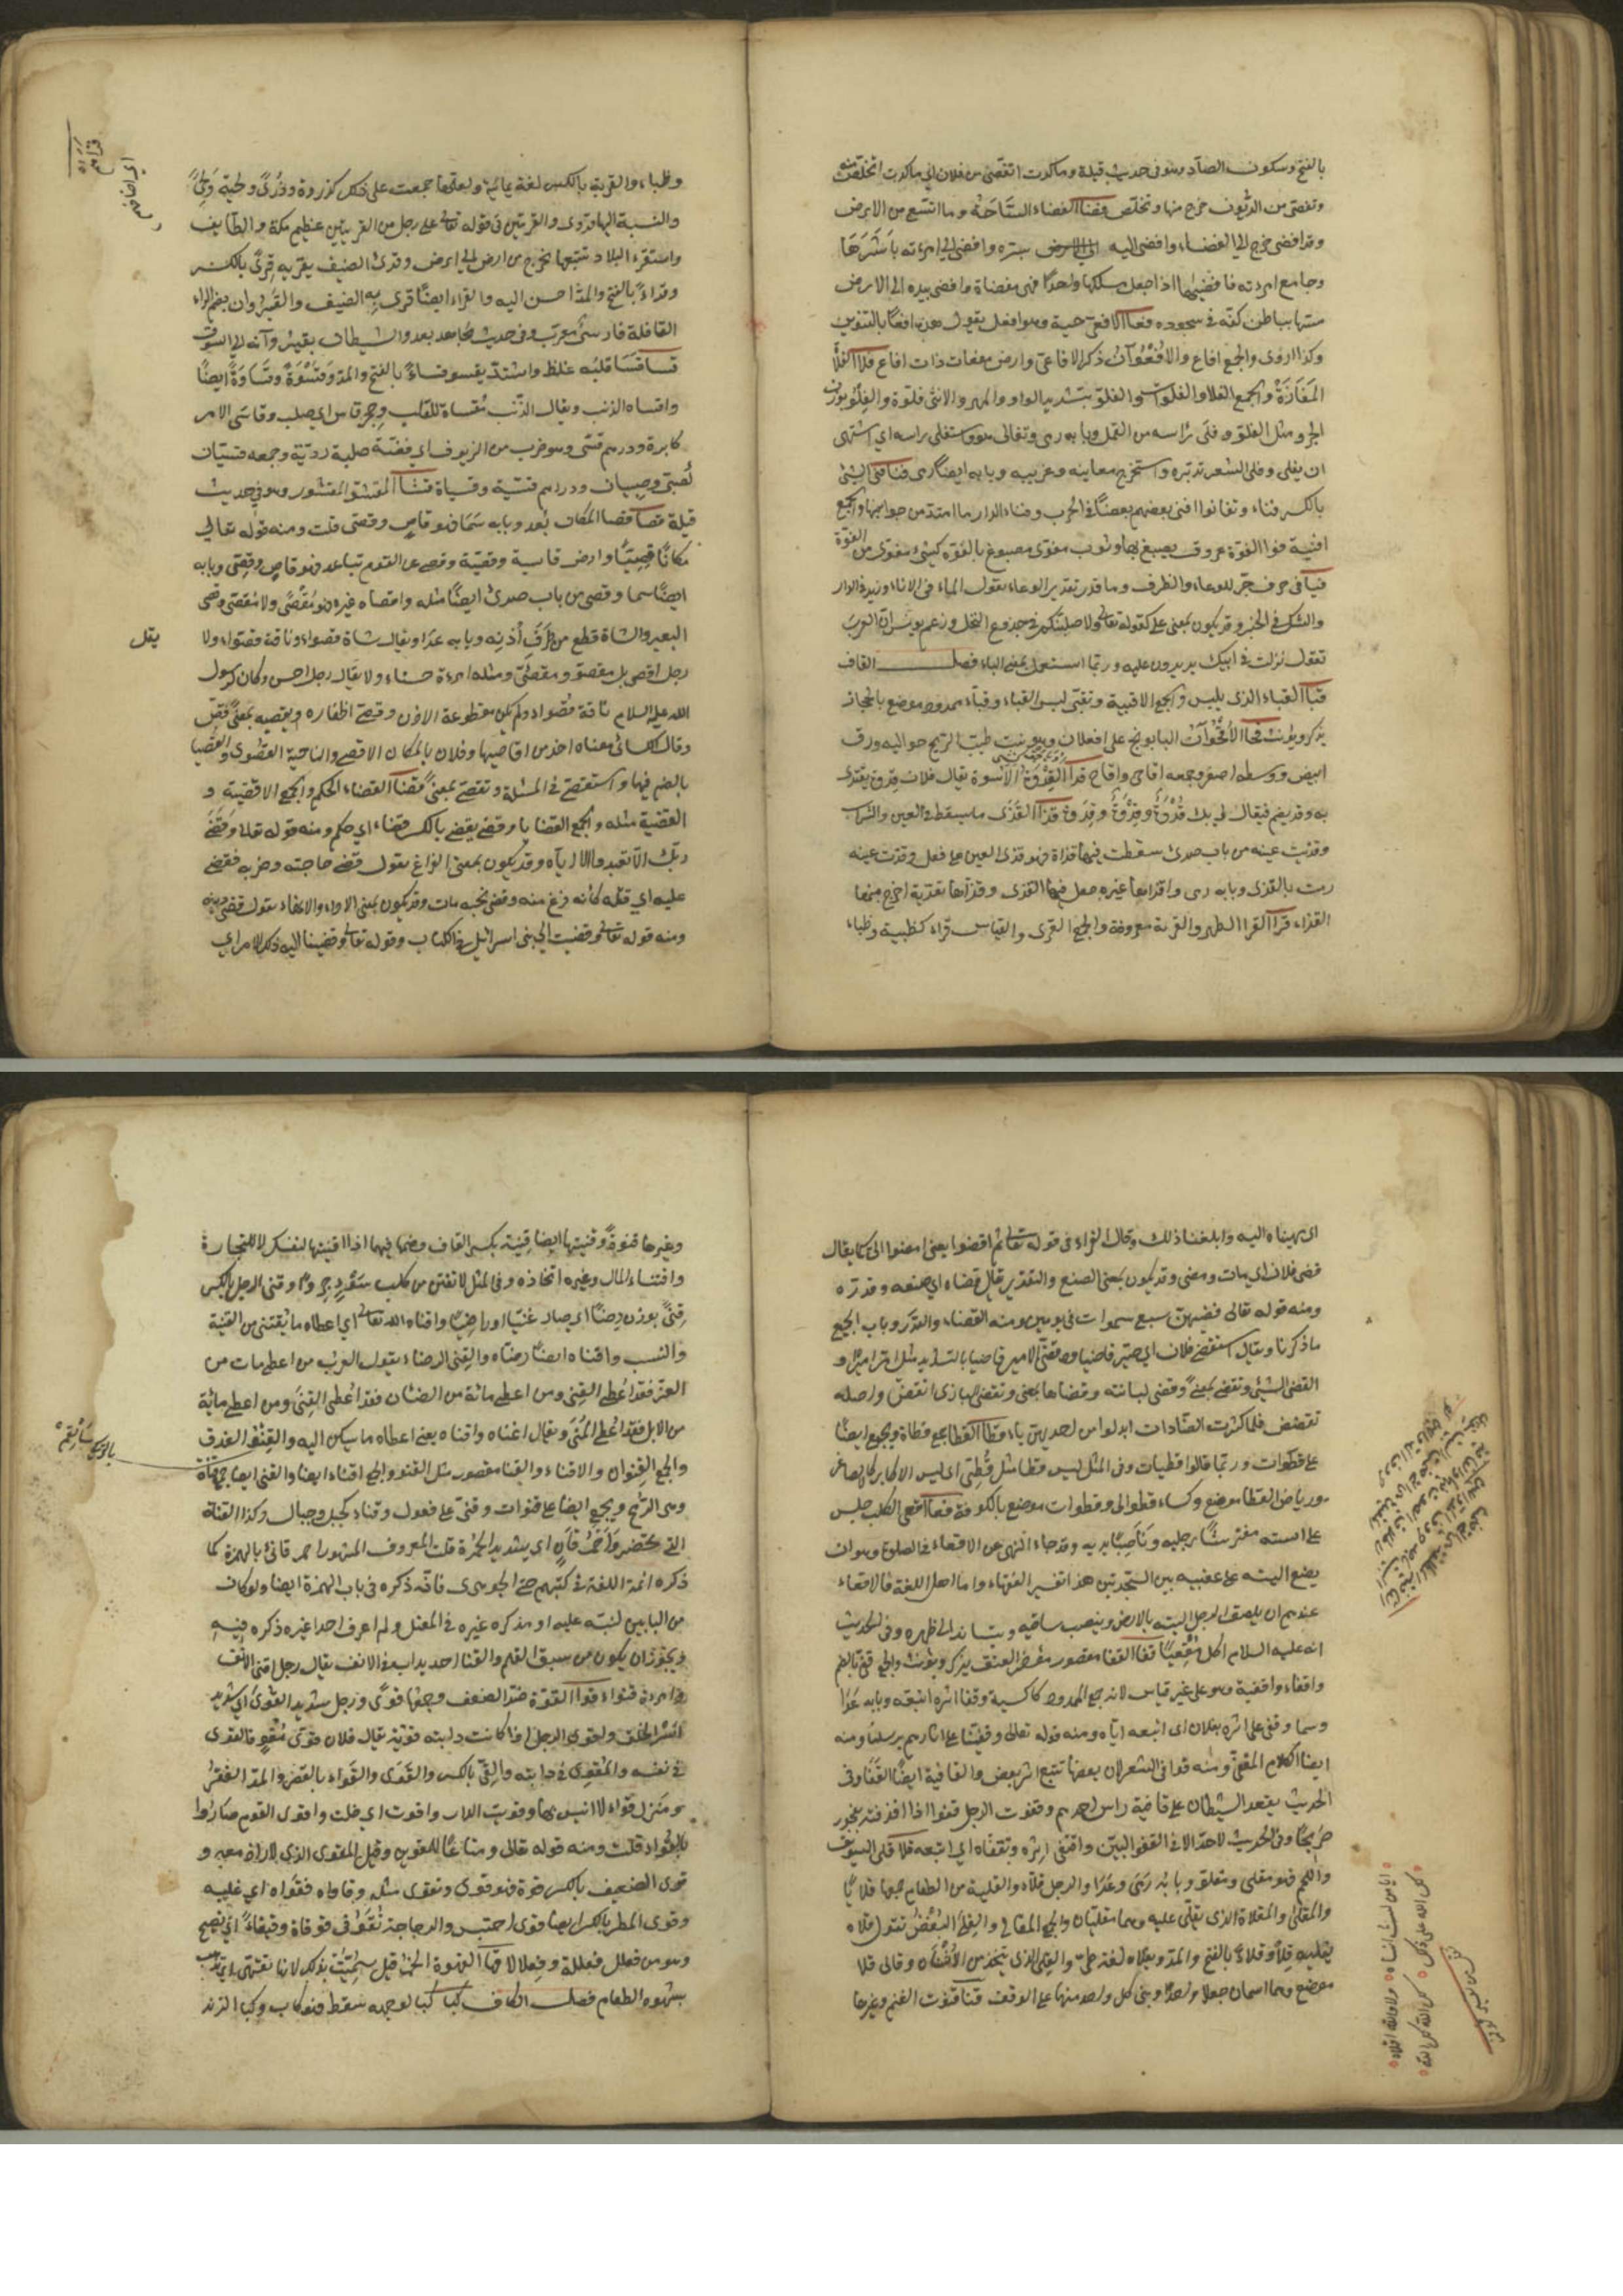 بالفتح وسكون الصاد وهو فى حديث قيلة وما كدت اتفصّى من فلان اى ما كدت اتخلص منه
وتفصى من الديون خرج منها وتخلص فضا الفضاء الساحة وما اتسع من الارض
وقد افضى خرج الى الفضاء وافضى اليه بسره وافضى الى امراته باشرها
وجامع امراته فافضاها اذا جعل مسلكها واحدا فهى مفضاة وافضى بيده الى الارض
مسها بباطن كفه فى سجوده فعا الافعى حية وهو افعل يقول هذه افعًا بالتنوين
وكذا اروى والجمع افاع والافعوان ذكر الافاعى وارض مفعاة ذات افاع فلا الفلاة
المفازة والجمع الفلا والفلوات والفلو بتشديد الواو المهر والانثى فلوة والفلو بوزن
الجرو مثل الفلو وفلى راسه من القمل وبابه رمى وتفالى هو واستفلى راسه اى اشتهى
ان يفلى وفلى الشعر تدبره واستخرج معانيه وغريبه وبابه ايضا رمى فنا فنى الشئ
بالكسر فناء وتفانوا افنى بعضهم بعضا فى الحرب وفناء الدار ما امتد من جوانبها والجمع
افنية فوا الفوة عروق يصبغ بها وثوب مفوى مصبوغ بالفوة كشئ مقوى من القوة
فيا فى حرف جر للوعاء والظرف وما قدر تقدير الوعاء تقول الماء فى الاناء وزيد فى الدار
والشك فى الخبر وقد يكون بمعنى على كقوله تعالى ولاصلبنكم فى جذوع النخل وزعم يونس ان العرب
تقول نزلت فى ابيك يريدون عليه وربما استعمل بمعنى الباء فصل القاف
قبا القباء الذى يلبس والجمع الاقبية وتقبى لبس القباء وقباء ممدود موضع بالحجاز
يذكر ويؤنث قحا الاقحوان البابونج على افعلان وهو نبت طيب الريح حواليه ورق
ابيض ووسطه اصفر وجمعه اقاحى واقاح قدا القدوة الاسوة يقال فلان قدوة يقتدى
به وقد يضم فيقال لى بك قدوة وقدوة وقدة قذا القذى ما يسقط فى العين والشراب
وقذيت عينه من باب صدى سقطت فيها قذاة فهو قذى العين على فعل وقذت عينه
رمت بالقذى وبابه رمى واقذاها غيره جعل فيها القذى وقذاها تقذية اخرج منها
القذاء قرا القرا الظهر والقرية معروفة والجمع القرى والقياس قراء كظبية وظباء
وظباء والقرية بالكسر لغة يمانية ولعلها جمعت على ذلك كذروة وذرى ولحية ولحى
والنسبة اليها قروى والقريتين فى قوله تعالى على رجل من القريتين عظيم مكة والطايف
واستقرء البلاد تتبعها يخرج من ارض الى ارض وقرى الضيف يقريه قرى بالكسر
وقراء بالفتح والمد احسن اليه والقراء ايضا قرى به الضيف والقيروان بضم الراء
القافلة فارسى معرب وفى حديث مجاهد يغدو الشيطان بقيروانه الى السوق
قسا قسا قلبه غلظ واشتد يقسو قساء بالفتح والمد وقسوة وقساوة ايضا
واقساه الذنب ويقال الذنب مقساة للقلب وحجر قاس اى صلب وقاسى الامر
كابده ودرهم قسى وهو ضرب من الزيوف اى فضته صلبة ردية وجمعه قسيان
كصبى وصبيان ودراهم قسية وقسيات قشا المقشو المقشور وهو فى حديث
قيلة قصا قصا المكان بعد وبابه سما فهو قاص وقصى قلت ومنه قوله تعالى
مكانا قصيا وارض قاصية وقصية وقصى عن القوم تباعد فهو قاص وقصى وبابه
ايضا سما وقصى من باب صدى ايضا مثله واقصاه غيره فهو مقصى ولا تقل مقصى وقصى
البعير والشاة قطع من طرف اذنه وبابه عدا ويقال شاة قصواء وناقة قصواء ولا
يقل
رجل اقصى بل مقصو ومقصى ومثله امرءة حسناء ولا يقال رجل احسن وكان لرسول
الله عليه السلام ناقة قصواء ولم تكن مقطوعة الاذن وقصى اظفاره ويقصيه بمعنى قص
وقال الكسائى معناه اخذ من اقاصيها وفلان بالمكان الاقصى والناحية القصوى والقصيا
بالضم فيها واستقصى فى المسئلة وتقصى بمعنى قضا القضاء الحكم والجمع الاقضية و
القضية مثله والجمع القضايا وقضى يقضى بالكسر قضاء اى حكم ومنه قوله تعالى وقضى
ربك الا تعبدوا الا اياه وقد يكون بمعنى الفراغ تقول قضى حاجته وضربه فقضى
عليه اى قتله كانه فرغ منه وقضى نحبه مات وقد يكون بمعنى الاداء والانهاء تقول قضى دينه
ومنه قوله تعالى وقضينا الى بنى اسرائيل فى الكتاب وقوله تعالى وقضينا اليه ذلك الامر اى
اى انهيناه اليه وابلغناه ذلك وقال الفراء فى قوله تعالى ثم اقضوا يعنى امضوا الى كما يقال
قضى فلان اى مات ومضى وقد يكون بمعنى الصنع والتقدير يقال قضاه اى صنعه وقدره
ومنه قوله تعالى فقضيهن سبع سموات فى يومين ومنه القضاء والقدر وباب الجميع
ما ذكرنا ويقال استقضى فلان اى صير قاضيا وقضى الامير قاضيا بالتشديد مثل امر اميرا و
انقضى الشئ وتقضى بمعنى وقضى لبانته وقضاها بمعنى وتقضى البازى انقض واصله
تقضض فلما كثرت الضادات ابدلوا من احديهن ياء قطا القطا جمع قطاة ويجمع ايضا
على قطوات وربما قالوا قطيات وفى المثل ليس قطا مثل قطى اى ليس الاكابر كالاصاغر
ورياض القطا موضع وكساء قطوانى وقطوان موضع بالكوفة قعا اقعى الكلب جلس
على استه مفترشا رجليه وناصبا يديه وقد جاء النهى عن الاقعاء فى الصلوة وهو ان
يضع اليته على عقبيه بين السجدتين هذا تفسير الفقهاء واما اهل اللغة فالاقعاء
عندهم ان يلصق الرجل اليته بالارض وينصب ساقيه ويتساند الى ظهره وفى الحديث
انه عليه السلام اكل مقعيا قفا القفا مقصور مؤخر العنق يذكر ويؤنث والجمع قفى بالضم
واقفاء واقفية وهو على غير قياس لانه جمع الممدود كاكسية وقفا اثره اتبعه وبابه عدا
وسما وقفى على اثره بفلان اى اتبعه اياه ومنه قوله تعالى وقفينا على اثارهم برسلنا ومنه
ايضا الكلام المقفى ومنه قوافى الشعر لان بعضها تتبع اثر بعض والقافية ايضا القفا وفى
الحديث يقعد الشيطان على قافية راس احدهم وقفوت الرجل قفوا اذا قذفته بفجور
صريحا وفى الحديث لا حد الا فى القفو البين واقتفى اثره وتقفاه اى اتبعه قلا قلى السويق
واللحم فهو مقلى ومقلو وبابه رمى وعدا والرجل قلاء والقلية من الطعام جمعها قلايا
والمقلى والمقلاة الذى يقلى عليه وهما مقليان والجمع المقالى والقلى البغض تقول قلاه
يقليه قلا وقلاء بالفتح والمد ويقلاه لغة طى والقلى الذى يتخذ من الاشنان وقالى قلا
موضع وهما اسمان جعلا واحدا وبنى كل واحد منهما على الوقف قنا قنوت الغنم وغيرها
وغيرها قنوة وقنيتها ايضا قنية بكسر القاف وضمها فيهما اذا اقتنيتها لنفسك لا للتجارة
واقتناء المال وغيره اتخاذه وفى المثل لا تقتن من كلب سوء جروا وقنى الرجل بالكسر
قنى بوزن رضا اى صار غنيا وراضيا واقناه الله تعالى اى اعطاه ما يقتنى من القنية
والنسب واقناه ايضا رضاه والقنى الرضاء تقول العرب من اعطى مائة من
المعز فقد اعطى القنى ومن اعطى مائة من الضان فقد اعطى الغنى ومن اعطى مائة
من الابل فقد اعطى المنى ويقال اغناه واقناه يعنى اعطاه ما يسكن اليه والقنو العذق
والجمع القنوان والاقناء والقنا مقصور مثل القنو والجمع اقناء ايضا والقنى ايضا جمع قناة
وهى الرمح ويجمع ايضا على قنوات وقنى على فعول وقناء كجبل وجبال وكذا القناة
التى تحتفر واحمر قان اى شديد الحمرة قلت المعروف المشهور احمر قانئ بالهمزة كما
ذكره ائمة اللغة فى كتبهم حتى الجوهرى فانه ذكره فى باب الهمزة ايضا ولو كان
من البابين لنبه عليه او مذكره غيره فى المعتل ولم اعرف احدا غيره ذكره فيه
ويجوز ان يكون من سبق القلم والقنا احديداب فى الانف يقال رجل اقنى الانف
وامرءة قنواء قوا القوة ضد الضعف وجمعها قوى ورجل شديد القوى اى شديد
اسر الخلق واقوى الرجل اذا كانت دابته قوية يقال فلان قوى مقو فالقوى
فى نفسه والمقوى فى دابته والقى بالكسر والقوى والقواء بالقصر والمد القفر
ومنزل قواء لا انيس بها وقويت الدار واقوت اى خلت واقوى القوم صاروا
بالقواء قلت ومنه قوله تعالى ومتاعا للمقوين وقيل المقوى الذى لا زاد معه و
قوى الضعيف بالكسر قوة فهو قوى وتقوى مثله وقاواه فقواه اى غلبه
وقوى المطر بالكسر ايضا قوى احتبس والدجاجة تقوقى قوقاة وقيقاء اى تصيح
وهو من فعلل فعللة وفعلالا قها القهوة الخمر قيل سميت بذلك لانها تقهى اى تذهب
بشهوة الطعام فصل الكاف كبا كبا لوجهه سقط فهو كاب وكبا الزند